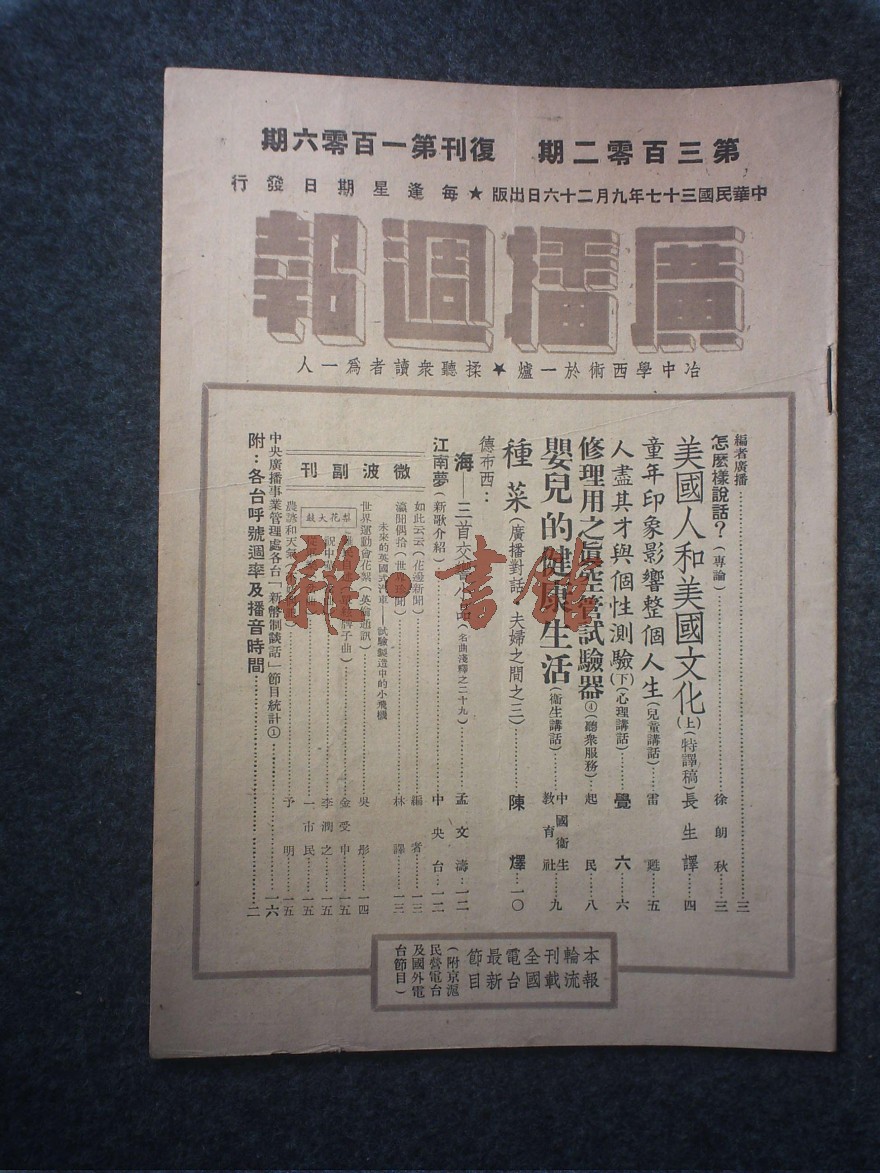 第三百零二期 復刊第一百零六期
中華民國三十七年九月二十六日出版★每逢星期日發行
廣播週報
冶中學西術於一爐★揉聽衆讀者爲一人
編者廣播……三
怎麽樣說話？(專論)……徐朗秋……三
美國人和美國文化(上)(特譯稿)長生譯……四
童年印象影響整個人生(兒童講話)……雷甦……五
人盡其才與個性測驗(下)(心理講話)……覺六……六
修理用之眞空管試驗器④(聽衆服務)……起民……八
嬰兒的健康生活(衞生講話)……中國衞生教育社……九
種菜(廣播對話 夫婦之間之三)……陳燡……一〇
德布西：
海——三首交響小品(名曲淺釋之二十九)……孟文濤……一二
江南夢(新歌介紹)……中央台……一二
微波副刊
如此云云(花邊新聞)……編者……一三
瀛聞偶拾(世界珍聞)……林譯……一三
未來的英國式汽車——試驗製造中的小飛機
世界運動會花絮(英倫通訊)……吳彤……一四
梨花大鼓
牌子曲)……金受申……一五
祝中……李潤之……一五
曲……一市民……一五
農諺和天氣……予明……一五
中央廣播事業管理處各台「新幣制談話」節目統計①……一六
附：各台呼號週率及播音時間……二
本報輪流刊載全國電台最新節目
(附京滬民營電台及國外電台節目)
雜·書館